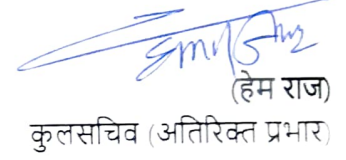 (हेम राज)
कुलसचिव (अतिरिक्त प्रभार)